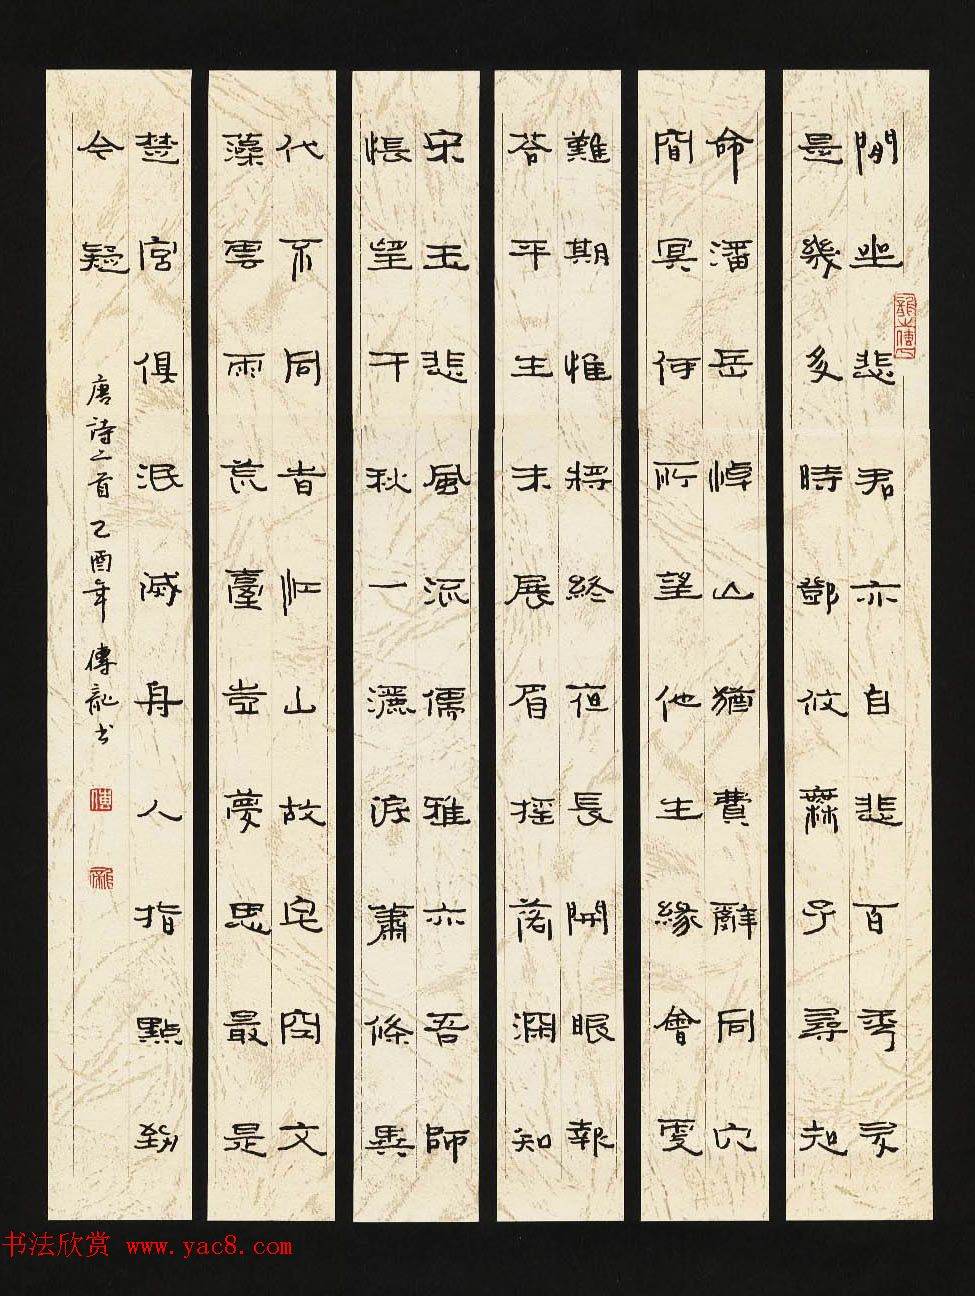 閒坐悲君亦自悲百秊
是幾多時鄧攸無子尋知
命潘岳悼亡猶費辭同穴
窅冥何所望他生緣會更
難期惟將終夜長開眼報
答平生未展眉搖落深知
宋玉悲風流儒雅亦吾師
悵望千秋一灑淚蕭條異
代不同時江山故宅空文
藻雲雨荒臺豈夢思最是
楚宮俱泯滅舟人指點到
今疑
唐詩二首 乙酉年 傳龍书
傳
龍
书法欣赏 www.yac8.com